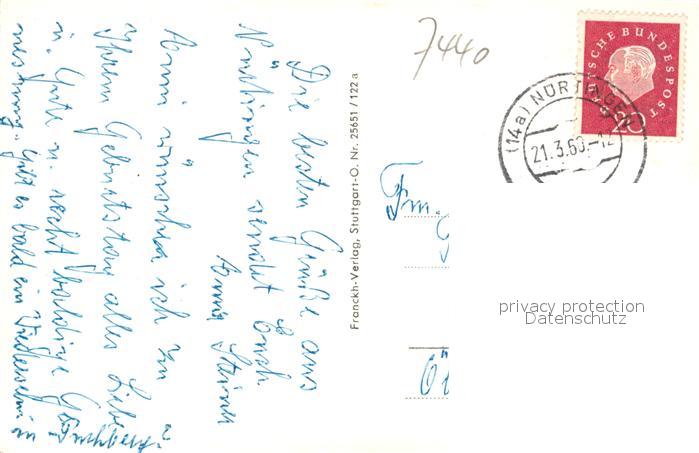 7440
DEUTSCHE BUNDESPOST
20
(14a) NÜRTINGEN
21.3.60.-12
Die besten Grüße aus
Nürtingen sendet Euch
Anna
wünsche ich zu
Ihrem Geburtstag alles Liebe
u. Gute u. recht baldige
gibt es bald ein Wiedersehen in
Franckh-Verlag, Stuttgart-O. Nr. 25651/122 a
Fm.
privacy protection
Datenschutz